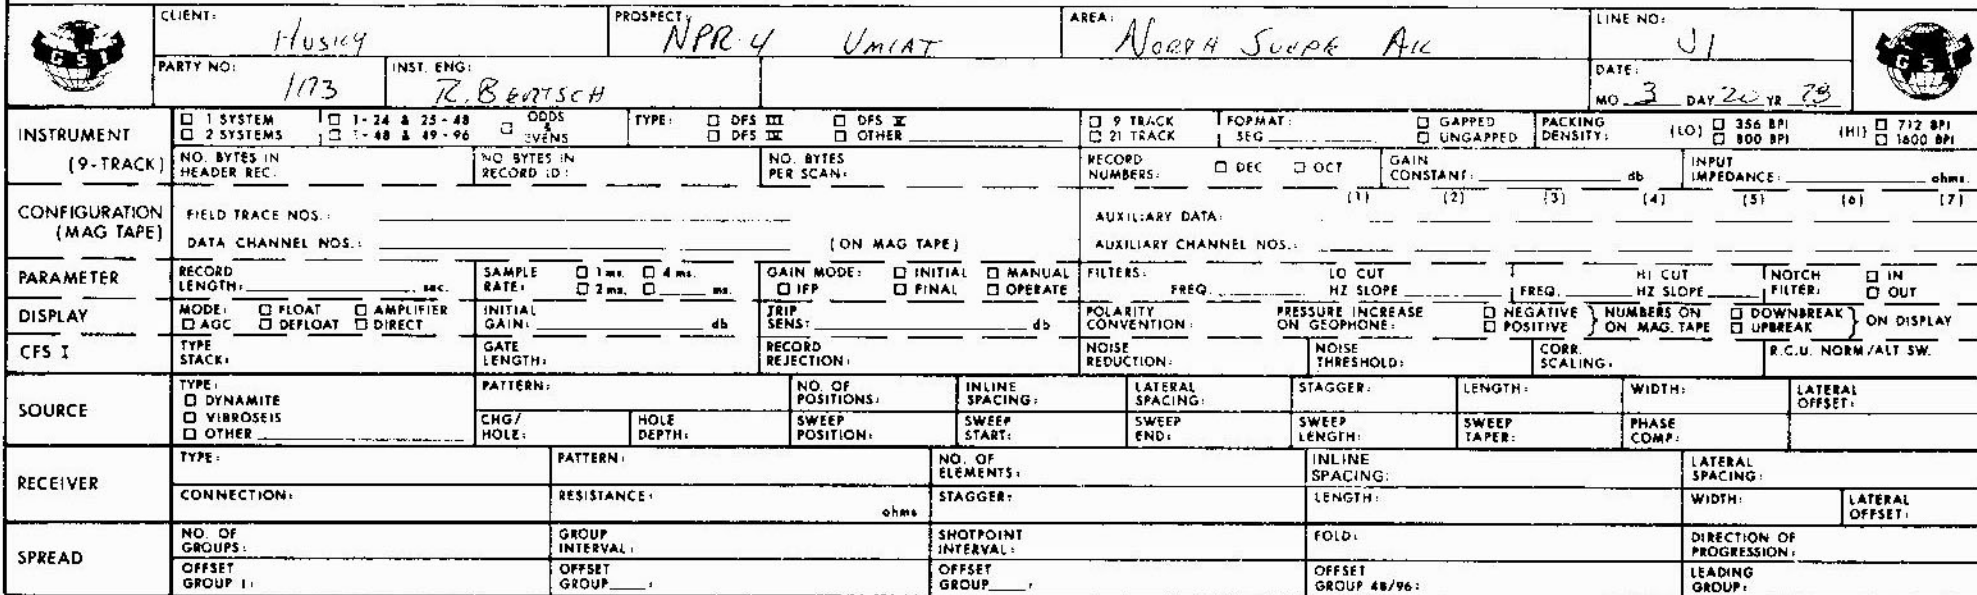 CLIENT: Husky PROSPECT: NPR-4 UMIAT AREA: NORTH SLOPE AK LINE NO: J1
GSI
PARTY NO: 1173 INST. ENG: R. BERTSCH DATE: MO 3 DAY 20 YR 78
INSTRUMENT (9-TRACK)
☐ 1 SYSTEM ☐ 1-24 & 25-48 ☐ ODDS & EVENS TYPE: ☐ DFS III ☐ DFS V ☐ 9 TRACK FORMAT: ☐ GAPPED PACKING DENSITY: (LO) ☐ 356 BPI (HI) ☐ 712 BPI
☐ 2 SYSTEMS ☐ 1-48 & 49-96 ☐ DFS IV ☐ OTHER ☐ 21 TRACK SEG ☐ UNGAPPED ☐ 800 BPI ☐ 1600 BPI
NO. BYTES IN HEADER REC: NO BYTES IN RECORD ID: NO. BYTES PER SCAN: RECORD NUMBERS: ☐ DEC ☐ OCT GAIN CONSTANT: db INPUT IMPEDANCE: ohms.
CONFIGURATION (MAG TAPE)
(1) (2) (3) (4) (5) (6) (7)
FIELD TRACE NOS.: AUXILIARY DATA:
DATA CHANNEL NOS.: (ON MAG TAPE) AUXILIARY CHANNEL NOS.:
PARAMETER
RECORD LENGTH: sec. SAMPLE RATE: ☐ 1 ms. ☐ 4 ms. ☐ 2 ms. ☐ ms. GAIN MODE: ☐ INITIAL ☐ MANUAL ☐ IFP ☐ FINAL ☐ OPERATE FILTERS: FREQ. LO CUT HZ SLOPE FREQ. HI CUT HZ SLOPE NOTCH FILTER: ☐ IN ☐ OUT
DISPLAY
MODE: ☐ FLOAT ☐ AMPLIFIER ☐ AGC ☐ DEFLOAT ☐ DIRECT INITIAL GAIN: db TRIP SENS: db POLARITY CONVENTION: PRESSURE INCREASE ON GEOPHONE: ☐ NEGATIVE ☐ POSITIVE } NUMBERS ON MAG. TAPE ☐ DOWNBREAK ☐ UPBREAK } ON DISPLAY
CFS I
TYPE STACK: GATE LENGTH: RECORD REJECTION: NOISE REDUCTION: NOISE THRESHOLD: CORR. SCALING: R.C.U. NORM/ALT SW.
SOURCE
TYPE: ☐ DYNAMITE ☐ VIBROSEIS ☐ OTHER PATTERN: NO. OF POSITIONS: INLINE SPACING: LATERAL SPACING: STAGGER: LENGTH: WIDTH: LATERAL OFFSET:
CHG/HOLE: HOLE DEPTH: SWEEP POSITION: SWEEP START: SWEEP END: SWEEP LENGTH: SWEEP TAPER: PHASE COMP:
RECEIVER
TYPE: PATTERN: NO. OF ELEMENTS: INLINE SPACING: LATERAL SPACING:
CONNECTION: RESISTANCE: ohms STAGGER: LENGTH: WIDTH: LATERAL OFFSET:
SPREAD
NO. OF GROUPS: GROUP INTERVAL: SHOTPOINT INTERVAL: FOLD: DIRECTION OF PROGRESSION:
OFFSET GROUP 1: OFFSET GROUP : OFFSET GROUP : OFFSET GROUP 48/96: LEADING GROUP: